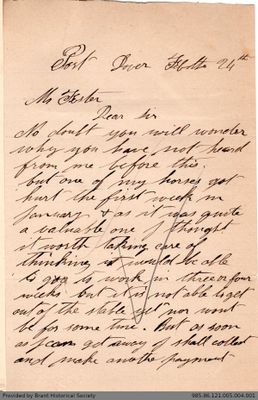 Port Dover Feb the 24th
Mr Foster
Dear Sir
No doubt you will wonder
why you have not heard
from me before this.
but one of my horses got
hurt the first week in
January & as it was quite
a valuable one I thought
it worth taking care of
thinking it would be able
to go to work in three or four
weeks but it is not able to get
out of the stable yet nor wont
be for some time. But as soon
as I can get away I shall collect
and make another payment
Provided by Brant Historical Society
985.86.121.005.004.001